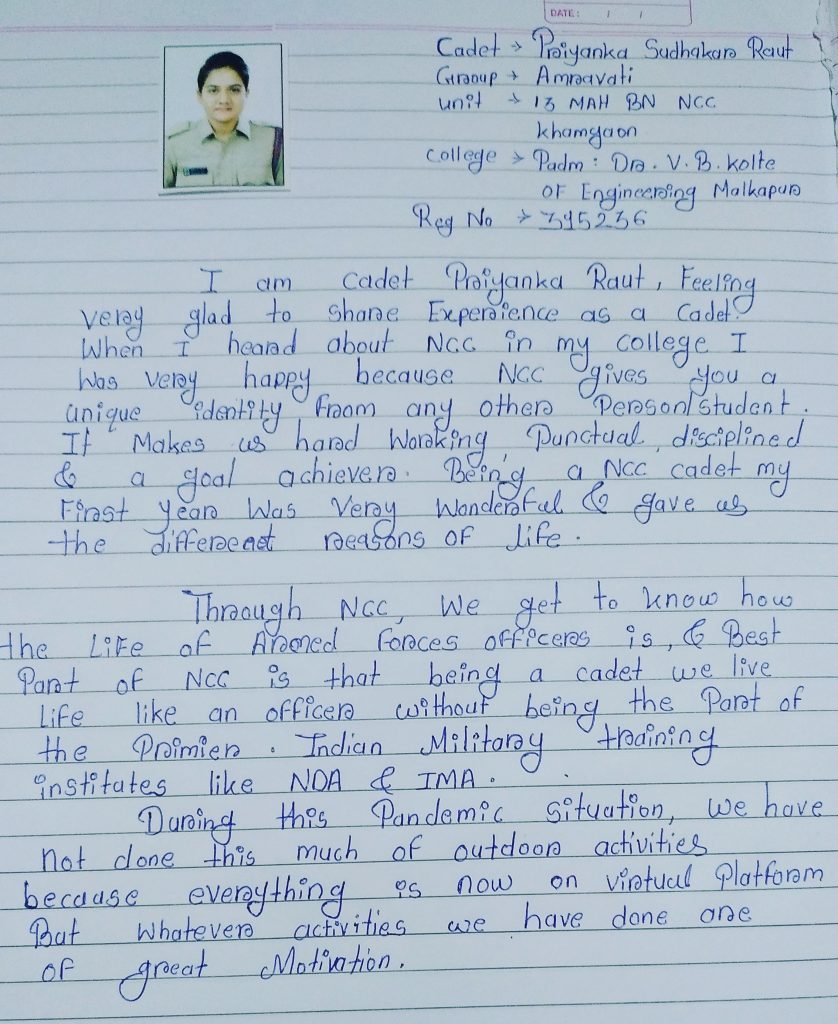 DATE: / /
Cadet → Priyanka Sudhakar Raut
Group → Amravati
unit → 13 MAH BN NCC
khamgaon
college → Padm : Dr. V. B. Kolte
OF Engineering Malkapur
Reg No → 315236
I am Cadet Priyanka Raut, Feeling
very glad to share Experience as a Cadet.
When I heard about NCC in my college I
Was very happy because NCC gives you a
unique identity from any other Person/student.
It Makes us hard Working, Punctual, disciplined
& a goal achiever. Being a NCC cadet my
First year Was Very Wonderful & gave us
the differenet reasons OF life.
Through NCC, We get to know how
the LiFe of Armed Forces officers is, & Best
Part of NCC is that being a cadet we live
Life like an officer without being the Part of
the Primier. Indian Military training
institutes like NDA & IMA.
During this Pandemic situation, we have
Not done this much of outdoor activities
because everything is now on virtual Platform
But Whatever activities we have done are
OF great Motivation.